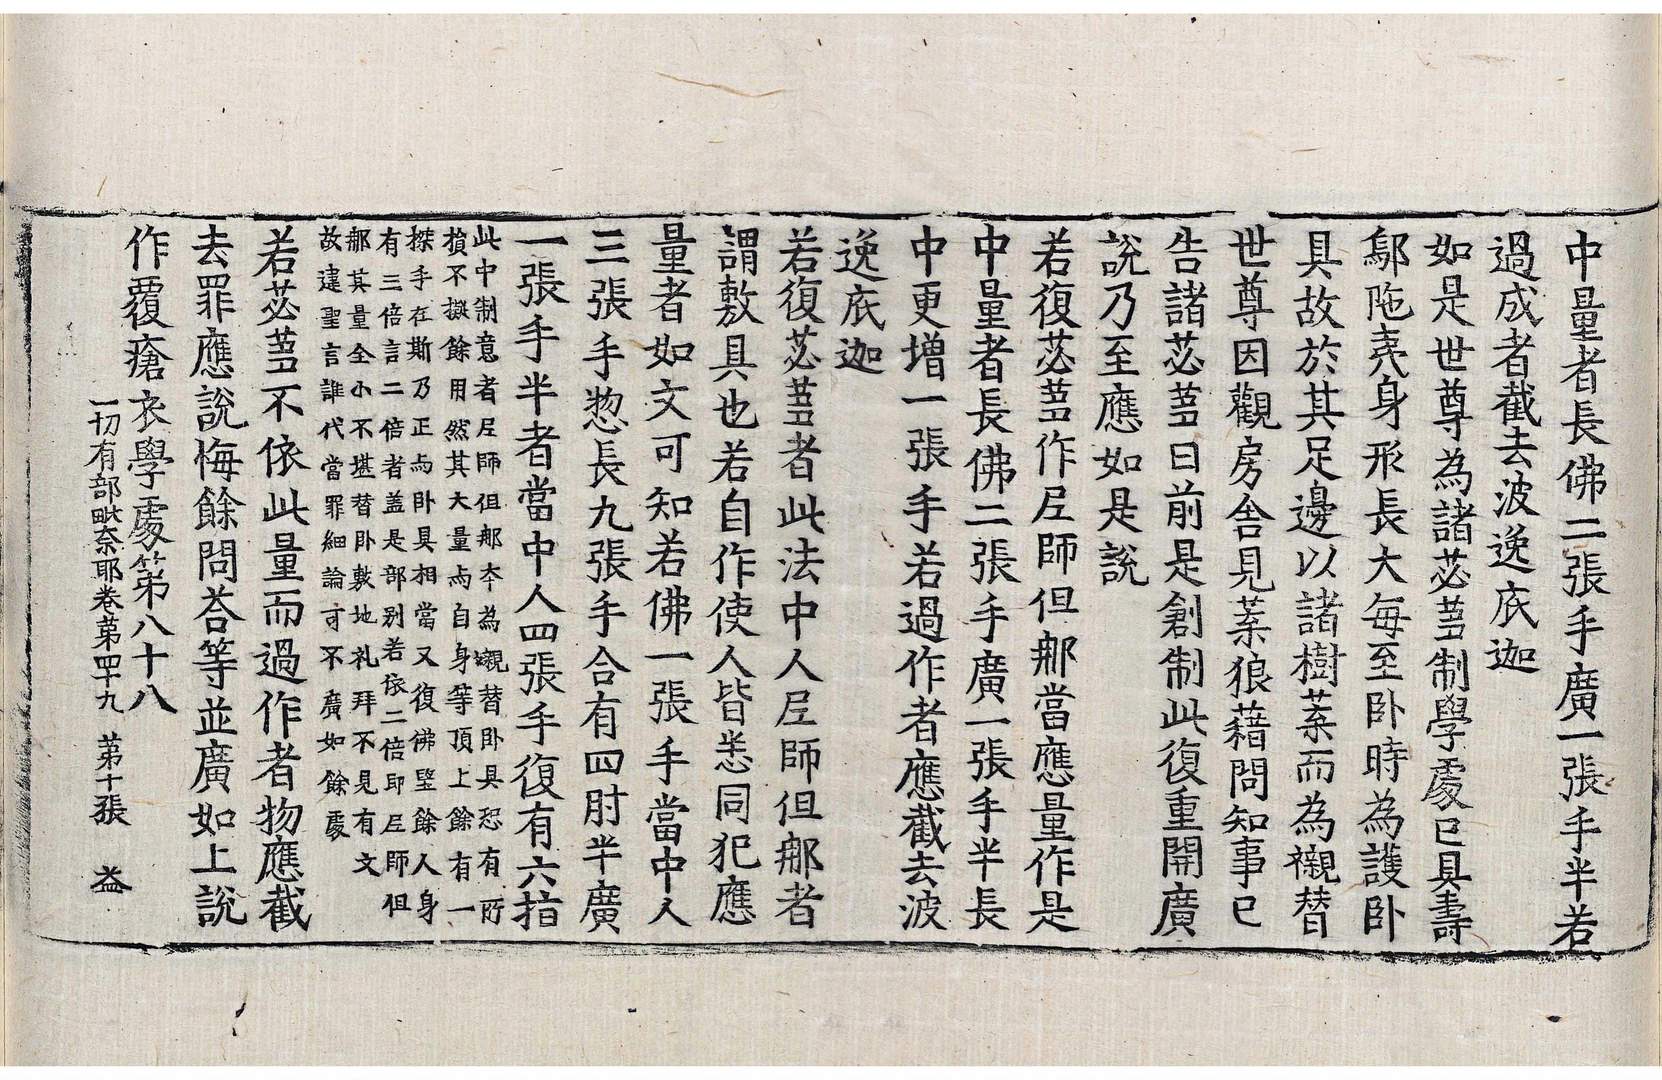 中量者長佛二張手廣一張手半若
過成者截去波逸底迦
如是世尊為諸苾芻制學處已具壽
鄔陁夷身形長大每至卧時為護卧
具故於其足邊以諸樹葉而為襯替
世尊因觀房舍見葉狼藉問知事已
告諸苾芻曰前是創制此復重開廣
說乃至應如是說
若復苾芻作尼師但那當應量作是
中量者長佛二張手廣一張手半長
中更增一張手若過作者應截去波
逸底迦
若復苾芻者此法中人尼師但那者
謂敷具也若自作使人皆悉同犯應
量者如文可知若佛一張手當中人
三張手惣長九張手合有四肘半廣
一張手半者當中人四張手復有六指
此中制意者尼師但那本為襯替卧具恐有所
損不擬餘用然其大量尚自身等頂上餘有一
磔手在斯乃正与卧具相當又復佛堅餘人身
有三倍言二倍者盖是部別若依二倍即尼師但
那其量全小不堪替卧敷地礼拜不見有文
故違聖言誰代當罪細論可不廣如餘處
若苾芻不依此量而過作者物應截
去罪應說悔餘問荅等並廣如上說
作覆瘡衣學處第八十八
一切有部毗奈耶卷第四十九 第十張 益